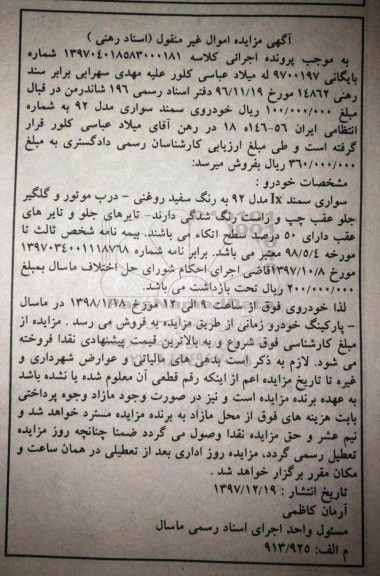 آگهی مزایده اموال غیر منقول (اسناد رهنی )
به موجب پرونده اجرائی کلاسه ۱۳۹۷۰۴۰۱۸۵۸۳۰۰۰۱۸۱ شماره
بایگانی ۹۷۰۰۱۹۷ له میلاد عباسی کلور علیه مهدی سهرابی برابر سند
رهنی ۱۴۸۶۲ مورخ ۹۶/۱۱/۱۹ دفتر اسناد رسمی ۱۹۶ شاندرمن در قبال
مبلغ ۱۰۰/۰۰۰/۰۰۰ ریال خودروی سمند سواری مدل ۹۲ به شماره
انتظامی ایران ۵۶-۱۴۶ه ۱۸ در رهن آقای میلاد عباسی کلور قرار
گرفته است و طی مبلغ ارزیابی کارشناسان رسمی دادگستری به مبلغ
۳۶۰/۰۰۰/۰۰۰ ریال بفروش میرسد:
مشخصات خودرو :
سواری سمند lx مدل ۹۲ به رنگ سفید روغنی - درب موتور و گلگیر
جلو عقب چپ و راست رنگ شدگی دارند- تایرهای جلو و تایر های
عقب دارای ۵۰ درصد سطح اتکاء می باشند. بیمه نامه شخص ثالث تا
مورخه ۹۸/۵/۴ معتبر می باشد. برابر نامه شماره ۱۳۹۷۰۳۴۰۰۱۱۱۸۷۶۸
مورخ ۱۳۹۷/۱۰/۸قاضی اجرای احکام شورای حل اختلاف ماسال بمبلغ
۲۰۰/۰۰۰/۰۰۰ ریال تحت بازداشت می باشد.
لذا خودروی فوق از ساعت ۹ الی ۱۲ مورخ ۱۳۹۸/۱/۱۸ در ماسال
- پارکینگ خودرو زمانی از طریق مزایده به فروش می رسد . مزایده از
مبلغ کارشناسی فوق شروع و به بالاترین قیمت پیشنهادی نقدا فروخته
می شود. لازم به ذکر است بدهی های مالیاتی و عوارض شهرداری و
غیره تا تاریخ مزایده اعم از اینکه رقم قطعی آن معلوم شده یا نشده باشد
به عهده برنده مزایده است و نیز در صورت وجود مازاد وجوه پرداختی
بابت هزینه های فوق از محل مازاد به برنده مزایده مسترد خواهد شد و
نیم عشر و حق مزایده نقدا وصول می گردد ضمنا چنانچه روز مزایده
تعطیل رسمی گردد، مزایده روز اداری بعد از تعطیلی در همان ساعت و
مکان مقرر برگزار خواهد شد .
تاریخ انتشار : ۱۳۹۷/۱۲/۱۹
آرمان کاظمی
مسئول واحد اجرای اسناد رسمی ماسال
م الف: ۹۱۳/۹۲۵